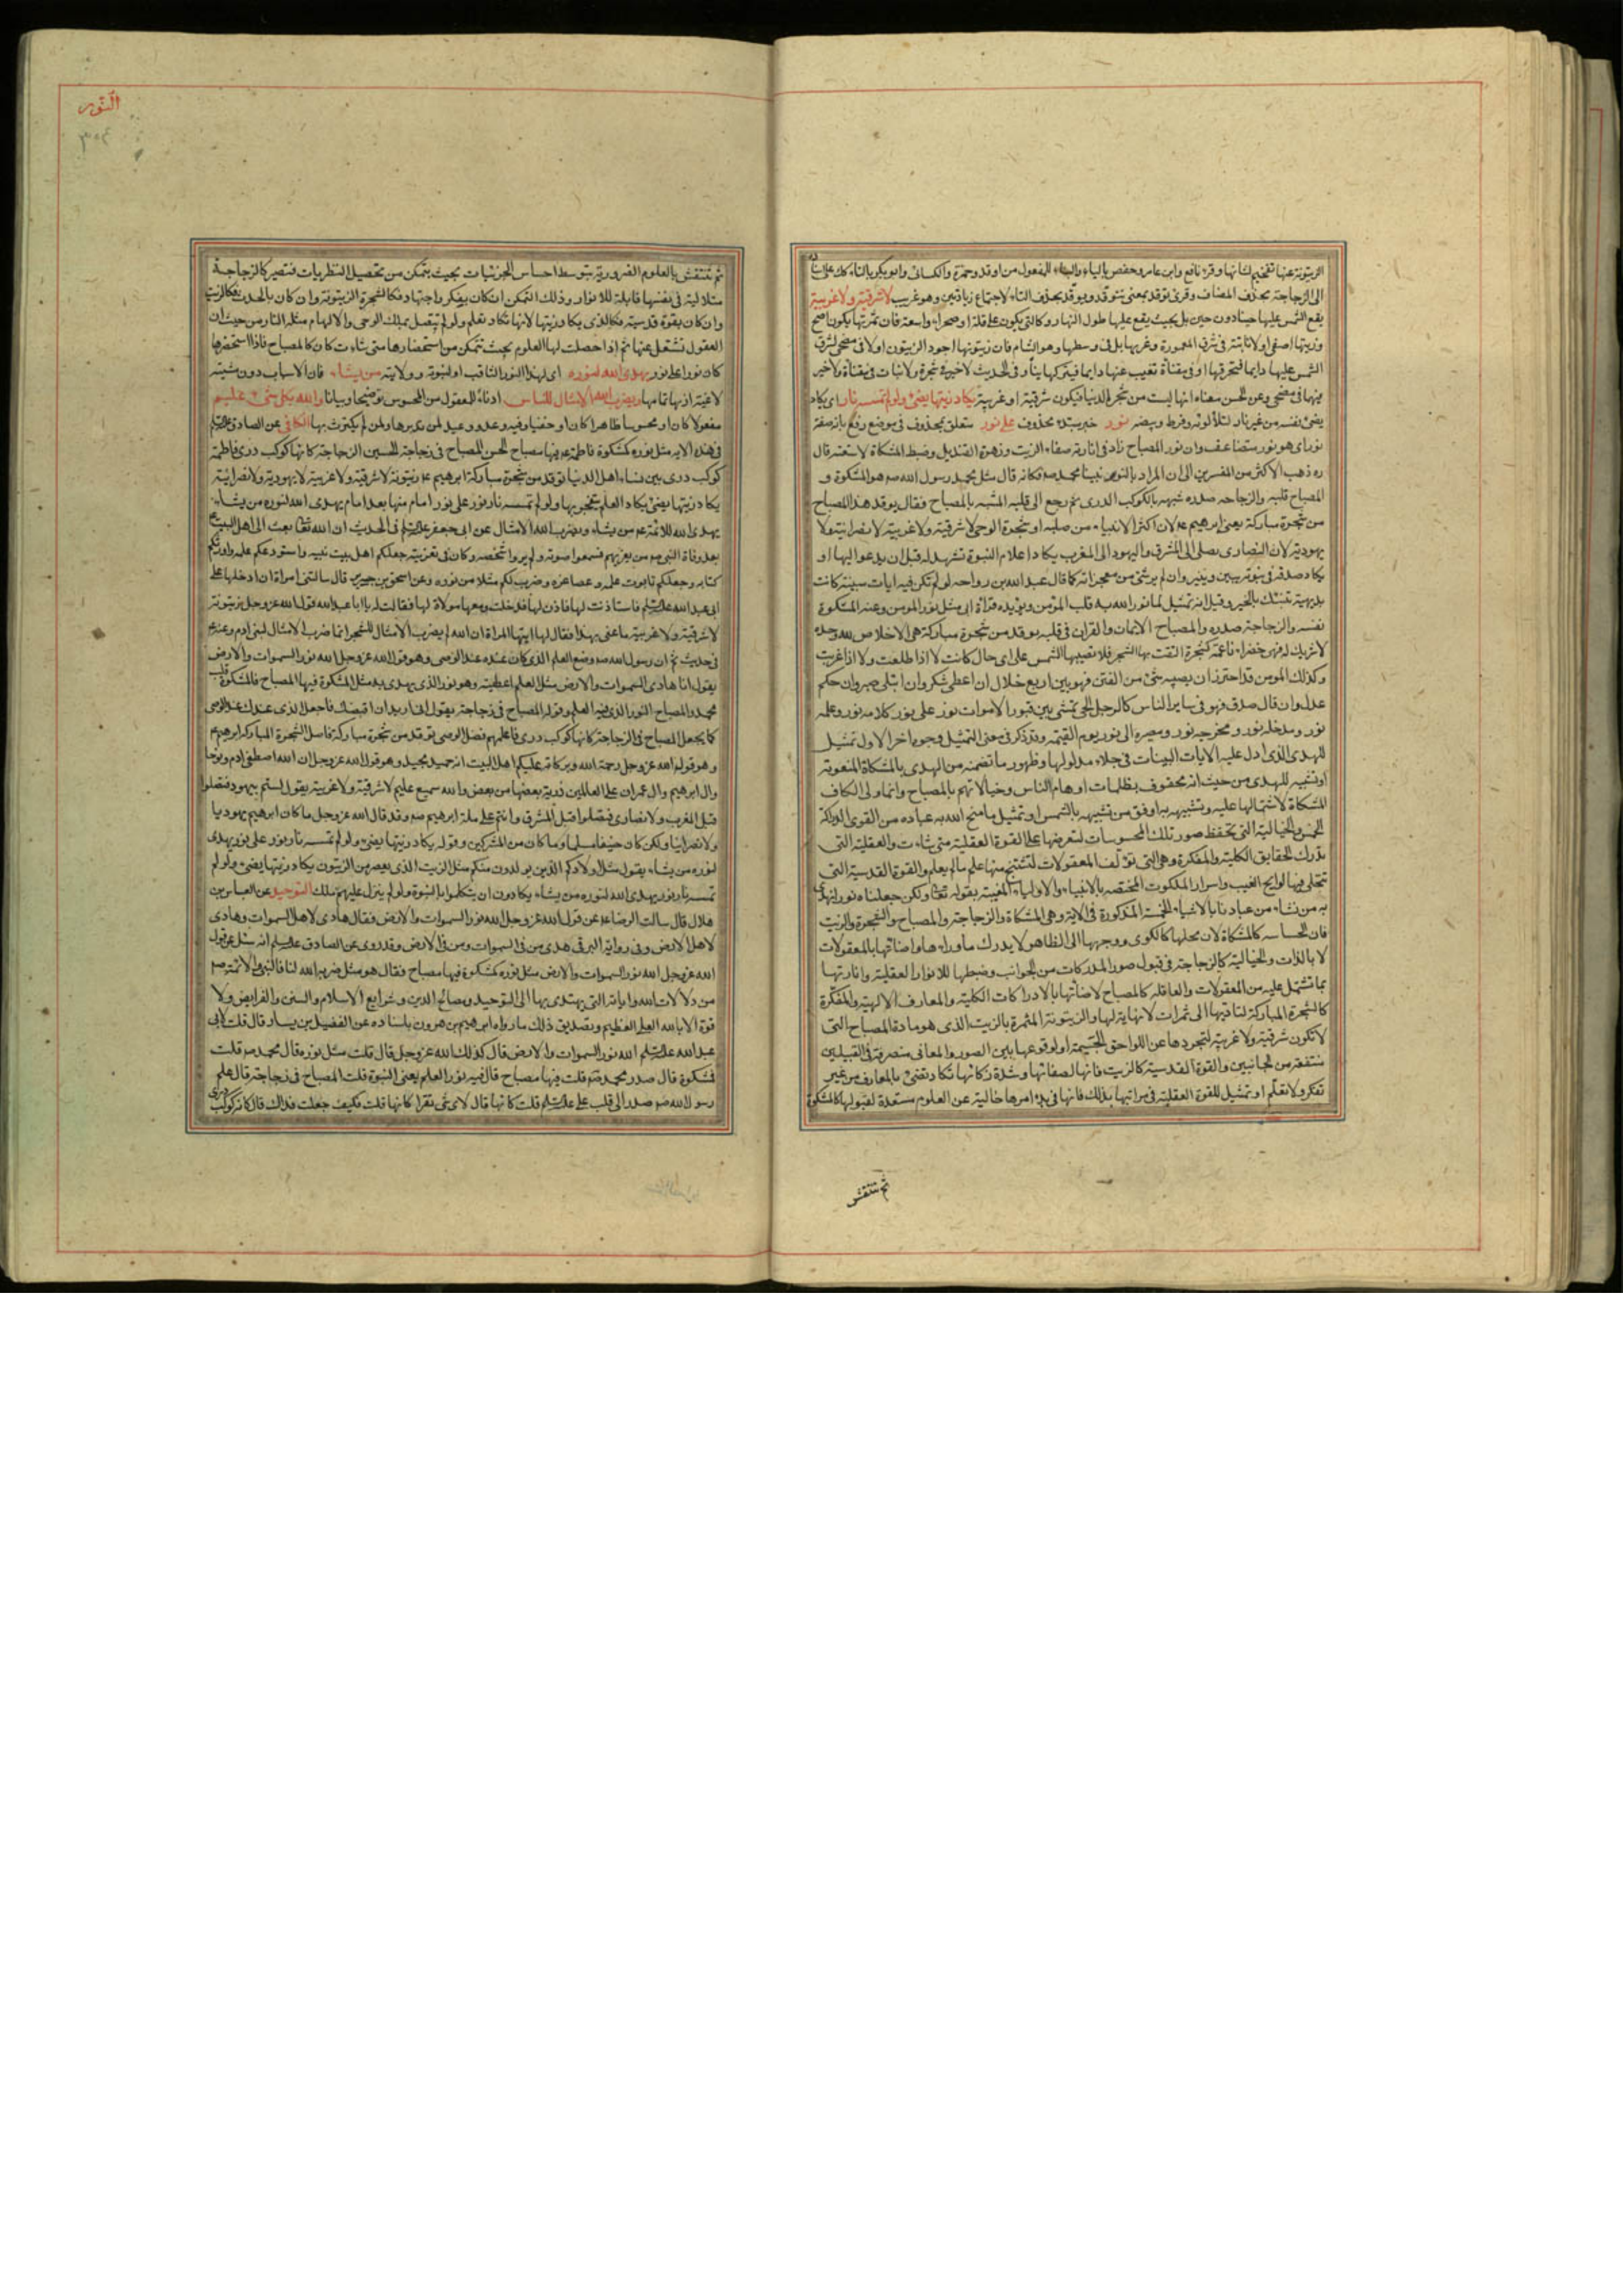 الزيتونة عنها تفخيم لشانها وقرء نافع وابن عامر وحفص بالياء والبناء للمفعول من اوقد وحمزة والكسائى وابو بكر بالتاء كذلك على اسناده
الى الزجاجة بحذف المضاف وقرئ توقد بمعنى تتوقد ويوقد بحذف التاء لاجتماع زيادتين وهو غريب لا شرقية ولا غربية
يقع الشمس عليها حينا دون حين بل بحيث يقع عليها طول النهار وكالتى يكون على قلة او صحراء واسعة فان ثمرتها يكون انضج
وزيتها اصفى او لا نابتة فى شرق المعمورة وغربها بل فى وسطها وهو الشام فان زيتونها اجود الزيتون او لا فى مضحى تشرق
الشمس عليها دايما فتحرقها او فى مقناة تغيب عنها دايما فيتركها نيا وفى الحديث لا خير فى شجرة ولا نبات فى مقناة ولا خير
فيها فى مضحى وعن الحسن معناه انها ليست من شجر الدنيا فيكون شرقية او غربية يكاد زيتها يضئ ولو لم تمسسه نار اى يكاد
يضئ بنفسه من غير نار لتلألؤه وفرط وبيصه نور خبر مبتدء محذوف على نور متعلق بمحذوف فى موضع رفع بانه صفة
نور اى هو نور متضاعف وان نور المصباح زاد فى انارته صفاء الزيت وزهرة القنديل وضبط المشكاة لاشعته قال
ره ذهب الاكثر من المفسرين الى ان المراد بالنور نبينا محمد صم فكانه قال مثل محمد رسول الله صم هو المشكوة و
المصباح قلبه والزجاجه صدره شبهه بالكوكب الدرى ثم رجع الى قلبه المشبه بالمصباح فقال يوقد هذا المصباح
من شجرة مباركة يعنى ابرهيم عم لان اكثر الانبياء من صلبه او شجرة الوحى لا شرقية ولا غربية لا نصرانية ولا
يهودية لان النصارى يصلى الى المشرق واليهود الى المغرب يكاد اعلام النبوة تشهد له قبل ان يدعو اليها او
يكاد صدقه فى نبوته يبين وينير وان لم ير شئ من معجزاته كما قال عبد الله بن رواحه لو لم تكن فيه ايات مبينة كانت
بديهية تنبئك بالخير وقيل انه تمثيل لما نور الله به قلب المؤمن ويؤيده قرأة ابى مثل نور المومن وعنه المشكوة
نفسه والزجاجة صدره والمصباح الايمان والقران فى قلبه يوقد من شجرة مباركة هى الاخلاص لله وحده
لا شريك له فهى خضراء ناعمة كشجرة التفت بها الشجر فلا تصيبها الشمس على اى حال كانت لا اذا طلعت ولا اذا غربت
وكذلك المومن قد احترز ان يصيبه شئ من الفتن فهو بين اربع خلال ان اعطى شكر وان ابتلى صبر وان حكم
عدل وان قال صدق فهو فى ساير الناس كالرجل الحى تمشى بين قبور الاموات نور على نور كلامه نور وعلمه
نور ومدخله نور ومخرجه نور ومصيره الى نور يوم القيمة وقد ذكر فى معنى التمثيل وجوه اخر الاول تمثيل
للهدى الذى دل عليه الايات البينات فى جلاء مدلولها وظهور ما تضمنه من الهدى بالمشكاة المنعوتة
او تشبيه للهدى من حيث انه محفوف بظلمات اوهام الناس وخيالاتهم بالمصباح وانما ولى الكاف
المشكاة لاشتمالها عليه وتشبيهه به اوفق من تشبيهه بالشمس او تمثيل ما منح الله به عباده من القوى الدراكة
الخمس والخيالية التى تحفظ صور تلك المحسوسات لتعرضها على القوة العقلية متى شاءت والعقلية التى
تدرك الحقايق الكلية والمفكرة وهى التى تؤلف المعقولات لتستنتج منها علم ما لم يعلم والقوة القدسية التى
تتجلى فيها لوايح الغيب واسرار الملكوت المختصة بالانبياء والاولياء المعنية بقوله تعالى ولكن جعلناه نورا نهدى
به من نشاء من عبادنا بالاشياء الخمسة المذكورة فى الاية وهى المشكاة والزجاجة والمصباح والشجرة والزيت
فان الحاسة كالمشكاة لان محلها كالكوى ووجهها الى الظاهر لا يدرك ما وراءها واضاءتها بالمعقولات
لا بالذات والخيالية كالزجاجة فى قبول صور المدركات من الجوانب وضبطها للانوار العقلية وانارتها
بما تشتمل عليه من المعقولات والعاقلة كالمصباح لاضأتها بالادراكات الكلية والمعارف الالهية والمفكرة
كالشجرة المباركة لتأديها الى ثمرات لا نهاية لها والزيتونة المثمرة بالزيت الذى هو مادة المصباح التى
لا تكون شرقية ولا غربية لتجردها عن اللواحق الجسمية او لوقوعها بين الصور والمعانى متصرفة فى القبيلين
منتفعة من الجانبين والقوة القدسية كالزيت فانها لصفائها وشدة ذكائها تكاد تضئ بالمعارف من غير
تفكر ولا تعلم او تمثيل للقوة العقلية فى مراتبها بذلك فانها فى بدء امرها خالية عن العلوم مستعدة لقبولها كالمشكوة
ثم تنتقش
النور
٣٥٤
ثم تنتقش بالعلوم الضرورية بتوسط احساس الجزئيات بحيث يتمكن من تحصيل النظريات فتصير كالزجاجة
متلالية فى نفسها قابلة للانوار وذلك التمكن ان كان بفكر واجتهاد فكالشجرة الزيتونة وان كان بالحدس فكالزيت
وان كان بقوة قدسية فكالذى يكاد زيتها لانها تكاد تعلم ولو لم تتصل بملك الوحى والالهام مثله النار من حيث ان
العقول تشتعل عنها ثم اذا حصلت لها العلوم بحيث تتمكن من استحضارها متى شاءت كان كالمصباح فاذا استحضرها
كان نورا على نور يهدى الله لنوره اى لهذا النور الثاقب او لنبوته وولايته من يشاء فان الاسباب دون مشيته
لاغية اذ بها تمامها ويضرب الله الامثال للناس ادناء للمعقول من المحسوس توضيحا وبيانا والله بكل شئ عليم
معقولا كان او محسوسا ظاهرا كان او خفيا وفيه وعد ووعيد لمن تدبرها ولمن لم يكترث بها الكافى عن الصادق عليه السلم
فى هذه الايه مثل نوره كمشكوة فاطمة عم فيها مصباح الحسن المصباح فى زجاجة الحسين الزجاجة كانها كوكب درى فاطمة
كوكب درى بين نساء اهل الدنيا توقد من شجرة مباركة ابرهيم عم زيتونة لا شرقية ولا غربية لا يهودية ولا نصرانية
يكاد زيتها يضئ يكاد العلم يتفجر بها ولو لم تمسسه نار نور على نور امام منها بعد امام يهدى الله لنوره من يشاء
يهدى الله للائمة عم من يشاء ويضرب الله الامثال عن ابى جعفر عليه السلم فى الحديث ان الله تعالى بعث الى اهل البيت
بعد وفاة النبى صم من يعزيهم فسمعوا صوته ولم يروا شخصه وكان فى تعزيته جعلكم اهل بيت نبيه واستودعكم علمه واورثكم
كتابه وجعلكم تابوت علمه وعصا عزه وضرب لكم مثلا من نوره وعن اسحق بن جرير قال سالتنى امراة ان ادخلها على
ابى عبد الله عليه السلم فاستاذنت لها فاذن لها فدخلت ومعها مولاة لها فقالت له يا ابا عبد الله قول الله عز وجل زيتونة
لا شرقية ولا غربية ما عنى بهذا فقال لها ايتها المراة ان الله لم يضرب الامثال للشجر انما ضرب الامثال لبنى ادم وعنه عم
فى حديث ثم ان رسول الله صم وضع العلم الذى كان عنده عند الوصى وهو قول الله عز وجل الله نور السموات والارض
يقول انا هادى السموات والارض مثل العلم اعطيته وهو نور الذى يهدى به مثل المشكوة فيها المصباح فالمشكوة قلب
محمد والمصباح النور الذى فيه العلم وقوله المصباح فى زجاجة يقول انى اريد ان اقبضك فاجعل الذى عندك عند الوصى
كما يجعل المصباح فى الزجاجة كانها كوكب درى فاعلمهم فضل الوصى توقد من شجرة مباركة فاصل الشجرة المباركة ابرهيم عم
وهو قوله الله عز وجل رحمة الله وبركاته عليكم اهل البيت انه حميد مجيد وهو قول الله عز وجل ان الله اصطفى ادم ونوحا
وال ابرهيم وال عمران على العالمين ذرية بعضها من بعض والله سميع عليم لا شرقية ولا غربية يقول لستم بيهود فتصلوا
قبل المغرب ولا نصارى فتصلوا قبل المشرق وانتم على ملة ابرهيم صم وقد قال الله عز وجل ما كان ابرهيم يهوديا
ولا نصرانيا ولكن كان حنيفا مسلما وما كان من المشركين وقوله يكاد زيتها يضئ ولو لم تمسسه نار نور على نور يهدى
لنوره من يشاء يقول مثل اولادكم الذين يولدون منكم مثل الزيت الذى يعصر من الزيتون يكاد زيتها يضئ ولو لم
تمسسه نار نور يهدى الله لنوره من يشاء يكادون ان يتكلموا بالنبوة ولو لم ينزل عليهم ملك التوحيد عن العباس بن
هلال قال سالت الرضا عم عن قول الله عز وجل الله نور السموات والارض فقال هادى لاهل السموات وهادى
لاهل الارض وفى رواية البرقى هدى من فى السموات ومن فى الارض وقد روى عن الصادق عليه السلم انه سئل عن قول
الله عز وجل الله نور السموات والارض مثل نوره كمشكوة فيها مصباح فقال هو مثل ضربه الله لنا فالنبى والائمة صم
من دلالات الله واياته التى يهتدى بها الى التوحيد ومصالح الدين وشرايع الاسلام والسنن والفرايض ولا
قوة الا بالله العلى العظيم وتصديق ذلك ما رواه ابرهيم بن هرون باسناده عن الفضيل بن يسار قال قلت لابى
عبد الله عليه السلم الله نور السموات والارض قال كذلك الله عز وجل قال قلت مثل نوره قال محمد صم قلت
كمشكوة قال صدر محمد صم قلت فيها مصباح قال فيه نور العلم يعنى النبوة قلت المصباح فى زجاجة قال علم
رسول الله صم صدر الى قلب على عليه السلم قلت كانها قال لاى شئ تقرا كانها قلت فكيف جعلت فداك قال كانه كوكب درى